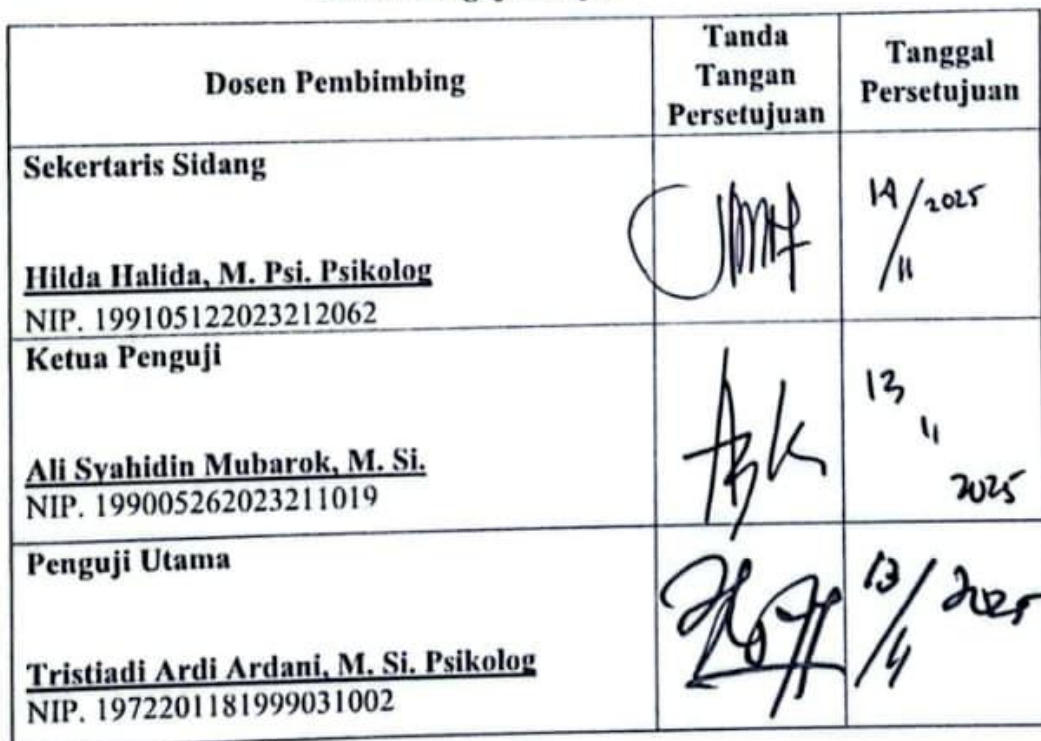 Dosen Pembimbing
Tanda
Tangan
Persetujuan
Tanggal
Persetujuan
Sekertaris Sidang
14/2025
11
Hilda Halida, M. Psi. Psikolog
NIP. 199105122023212062
Ketua Penguji
13
11
2025
Ali Syahidin Mubarok, M. Si.
NIP. 199005262023211019
Penguji Utama
13/2025
Tristiadi Ardi Ardani, M. Si. Psikolog
NIP. 1972201181999031002